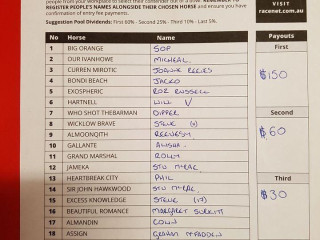 people from your workplace to select their contender but of a bowl. REMEMBER TO
REGISTER PEOPLE'S NAMES ALONGSIDE THEIR CHOSEN HORSE and ensure you have
confirmation of entry fee payments.
Suggestion Pool Dividends: First 60% - Second 25% - Third 10% - Last 5%.
VISIT
racenet.com.au
No Horse Name Payouts
1 BIG ORANGE SOP
First
2 OUR IVANHOWE MICHEAL
3 CURREN MIROTIC
$150
4 BONDI BEACH JACKO
5 EXOSPHERIC ROZ RUSSELL
6 HARTNELL WILL V
7 WHO SHOT THEBARMAN DIPPER
Second
8 WICKLOW BRAVE STEVE
$60
9 ALMOONQITH
10 GALLANTE
11 GRAND MARSHAL ROLLY
12 JAMEKA STU
13 HEARTBREAK CITY PHIL
Third
14 SIR JOHN HAWKWOOD STU
$30
15 EXCESS KNOWLEDGE STEVE
16 BEAUTIFUL ROMANCE MARGARET
17 ALMANDIN COLIN
18 ASSIGN GRAHAM MCFADDEN